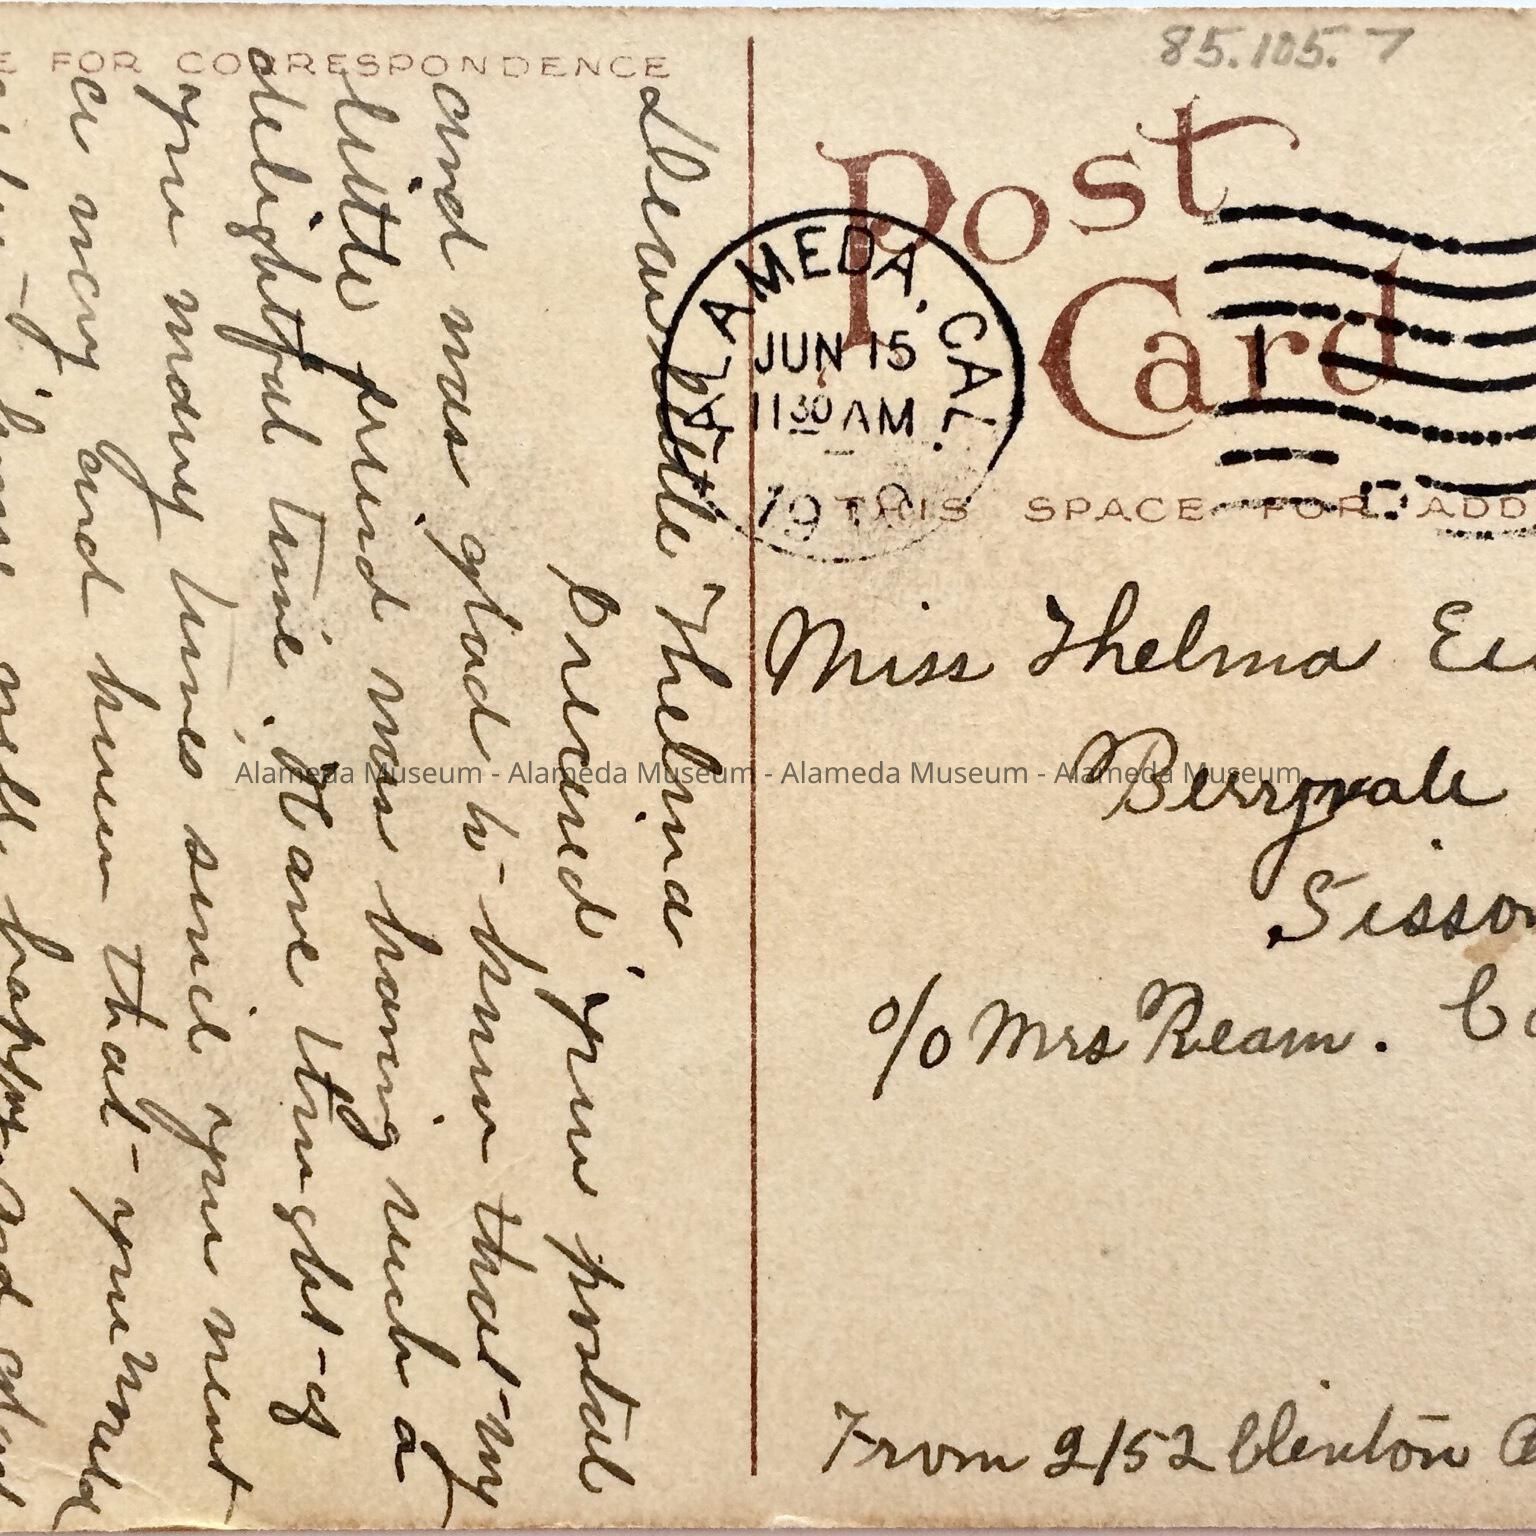 E FOR CORRESPONDENCE
85.105.7
Post
Card
ALAMEDA, CAL.
JUN 15
11 30 AM
19
THIS SPACE FOR ADD
Miss Thelma
Berryvale
Sisson
c/o Mrs Ream. Ca
From 2152 Clinton
Dear little Thelma
Received your postal
and was glad to know that my
little friend was having such a
delightful time. Have thought of
you many times since you went
away and knew that you would
happy and
Alameda Museum - Alameda Museum - Alameda Museum - Alameda Museum